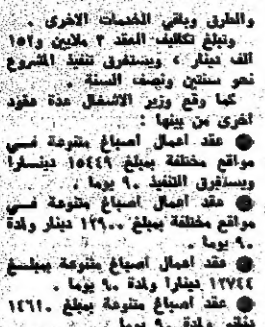 والطرق وباقي الخدمات الاخرى .
وتبلغ تكاليف العقد ٣ ملايين و١٥٢
الف دينار ، ويستغرق تنفيذ المشروع
نحو سنتين ونصف السنة .
كما وقع وزير الاشغال عدة عقود
اخرى من بينها :
● عقد اعمال اصباغ متنوعة فـــي
مواقع مختلفة بمبلغ ١٥٤٤٩ دينــــارا
ويستغرق التنفيذ ٩٠ يوما .
● عقد اعمال اصباغ متنوعة فـــي
مواقع مختلفة بمبلغ ١٢٩٠٠ دينار ولمدة
٩٠ يوما .
● عقد اعمال اصباغ متنوعة بمبلـــغ
١٢٧٤٤ دينارا ولمدة ٩٠ يوما .
● عقد اصباغ متنوعة بمبلغ ١٤٦١٠
دنانير ولمدة ٩٠ يوما .